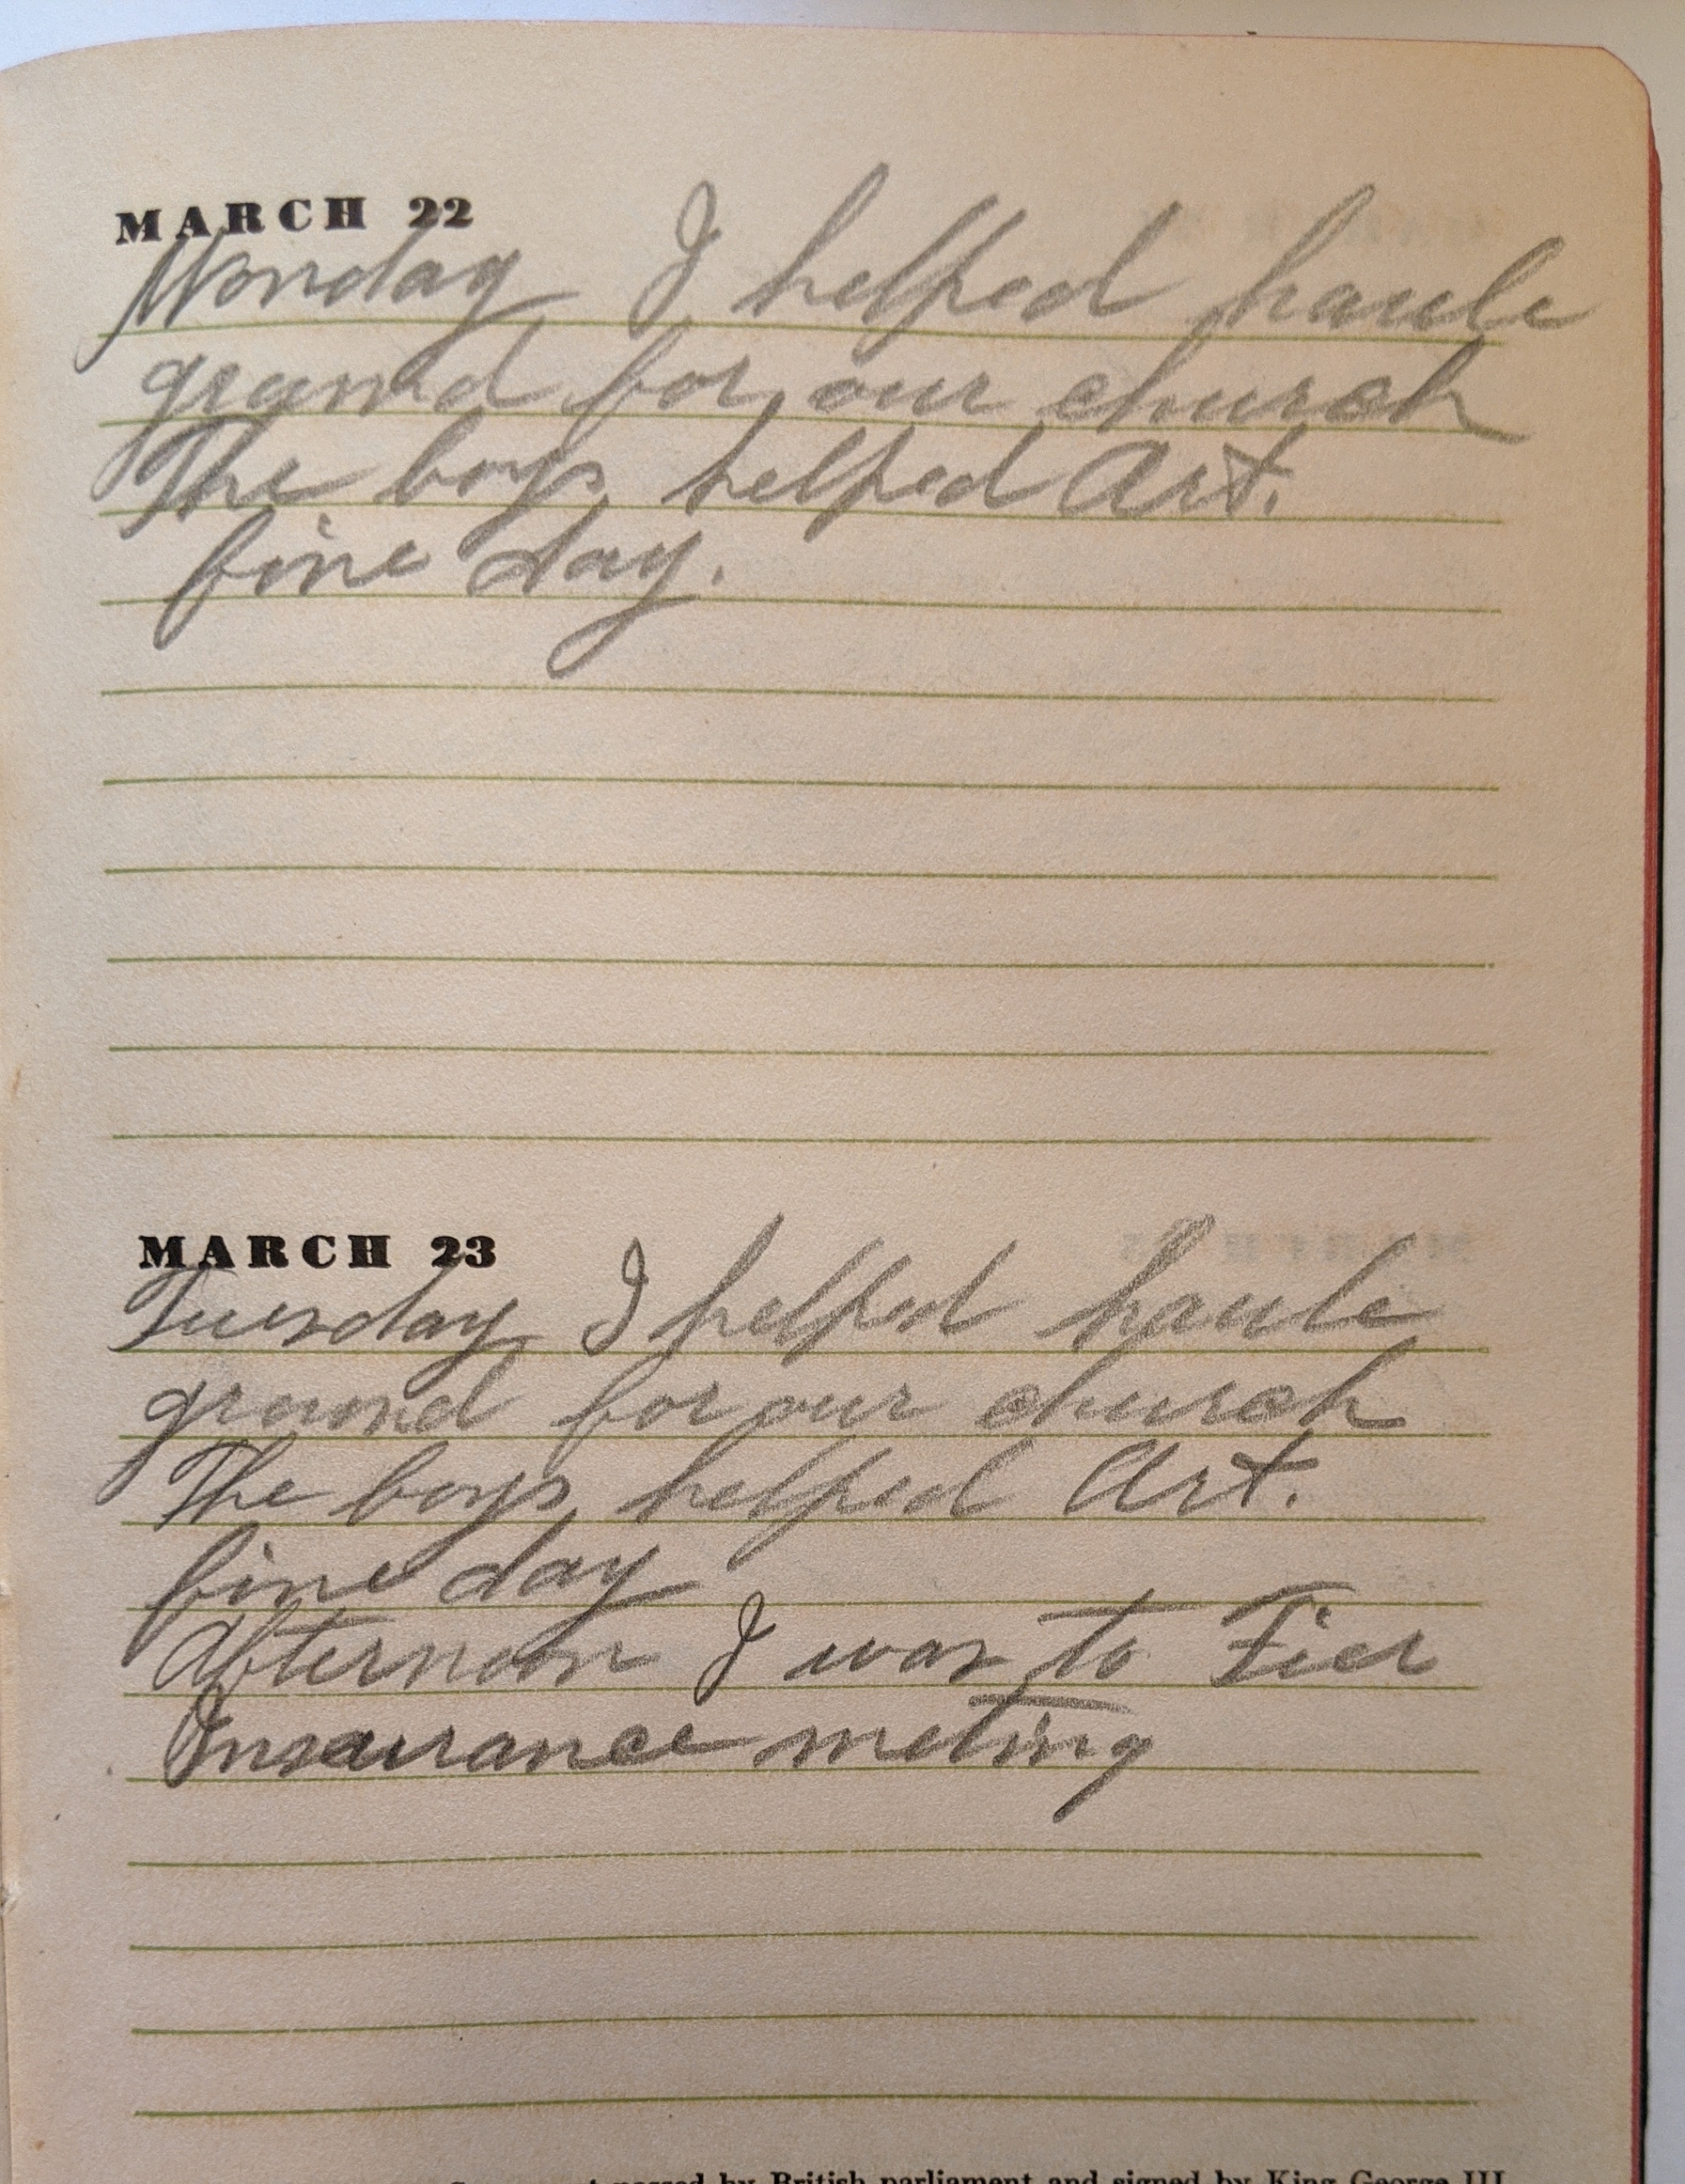 MARCH 22
Monday I helped haule
ground for our church
The boys helped Art.
fine day.
MARCH 23
Tuesday I helped haule
ground for our church
The boys helped Art.
fine day
Afternoon I was to Fier
Insaurance meting
passed by British parliament and signed by King George III